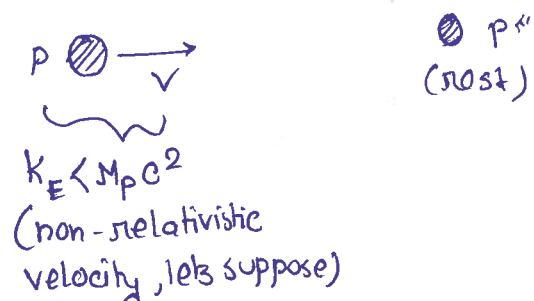 p
v
p"
(rest)
K_E < M_P C²
(non-relativistic
velocity, lets suppose)